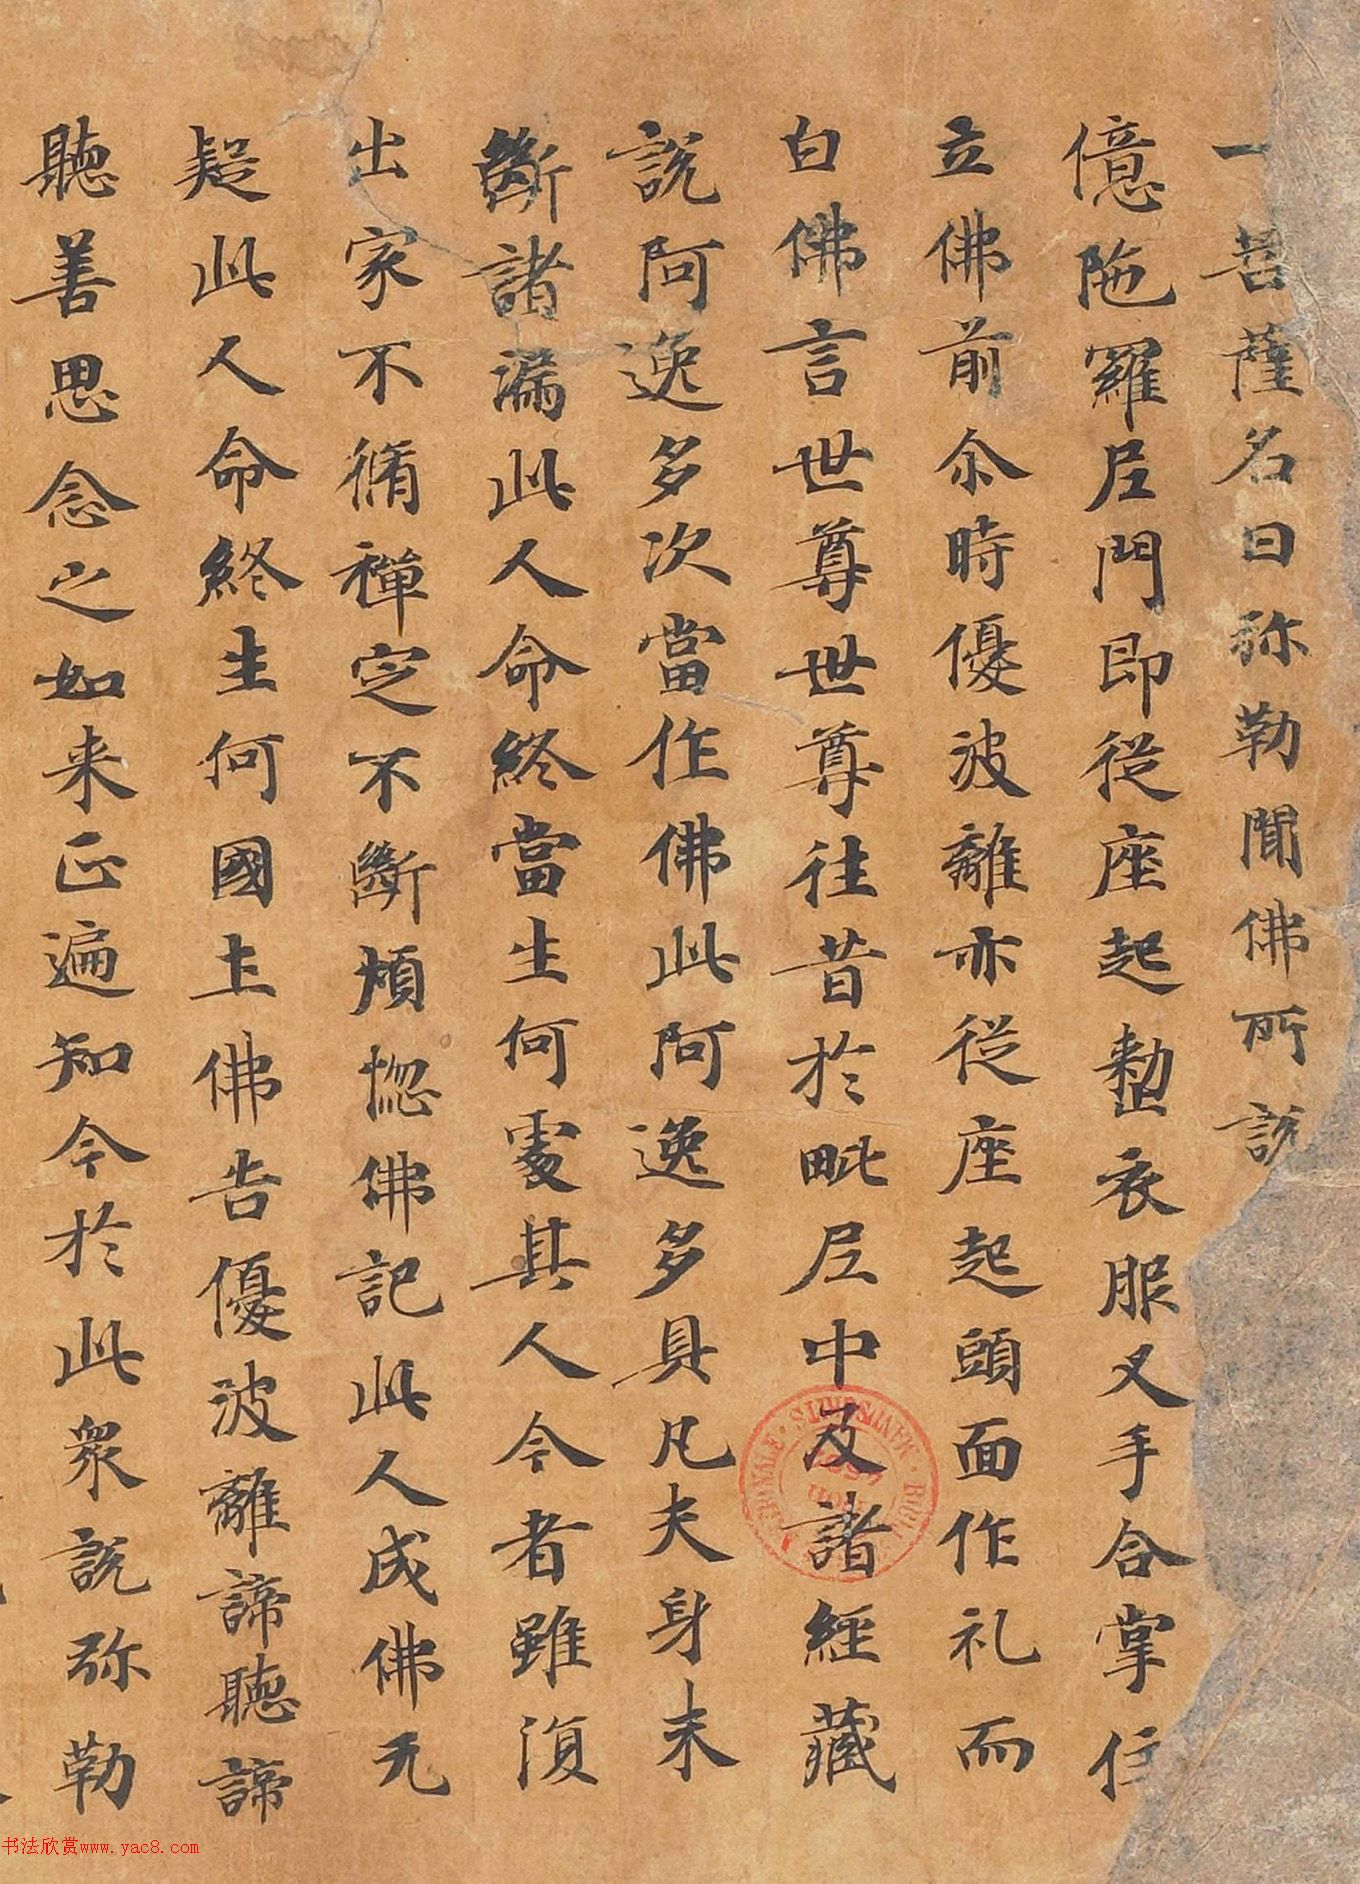 一菩薩名曰弥勒聞佛所說
億陁羅尼門即從座起整衣服叉手合掌住
立佛前尒時優波離亦從座起頭面作礼而
白佛言世尊世尊往昔於毗尼中及諸經藏
說阿逸多次當作佛此阿逸多具凡夫身未
斷諸漏此人命終當生何處其人今者雖復
出家不脩禪定不斷煩惚佛記此人成佛无
疑此人命終生何國土佛告優波離諦聽諦
聽善思念之如来正遍知今於此衆說弥勒
书法欣赏www.yac8.com